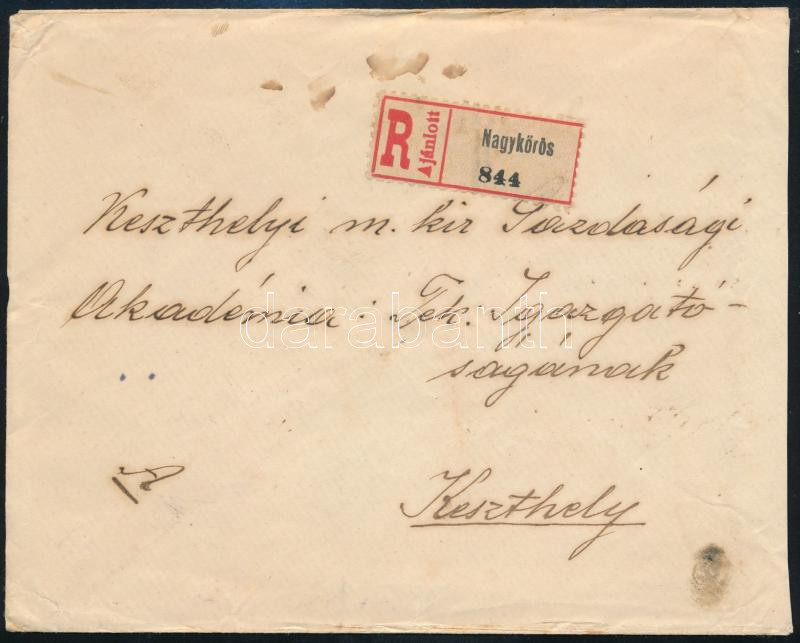 R Ajánlott Nagykőrös
844
Keszthelyi m. kir Gazdasági
Akadémia: Tek. Igazgató-
ságának
Keszthely
darabanth